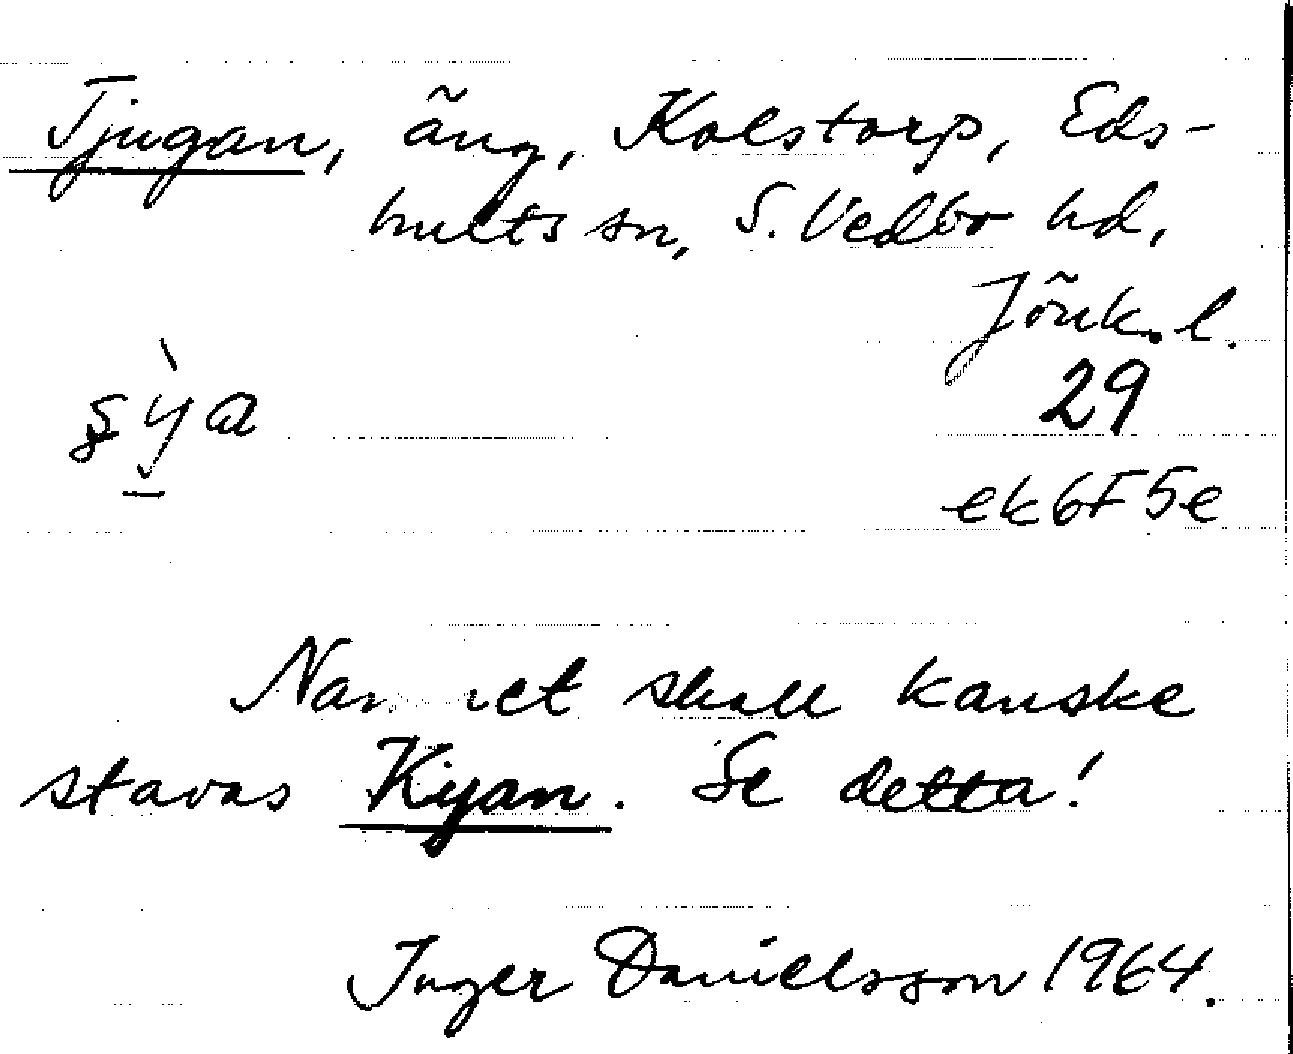 Tjugan, äng, Kolstorp, Eds-
hults sn, S. Vedbo hd,
Jönk. l.
29
ek 6F5e
Namnet skall kanske
stavas Kyan. Se detta!
Inger Danielsson 1964.